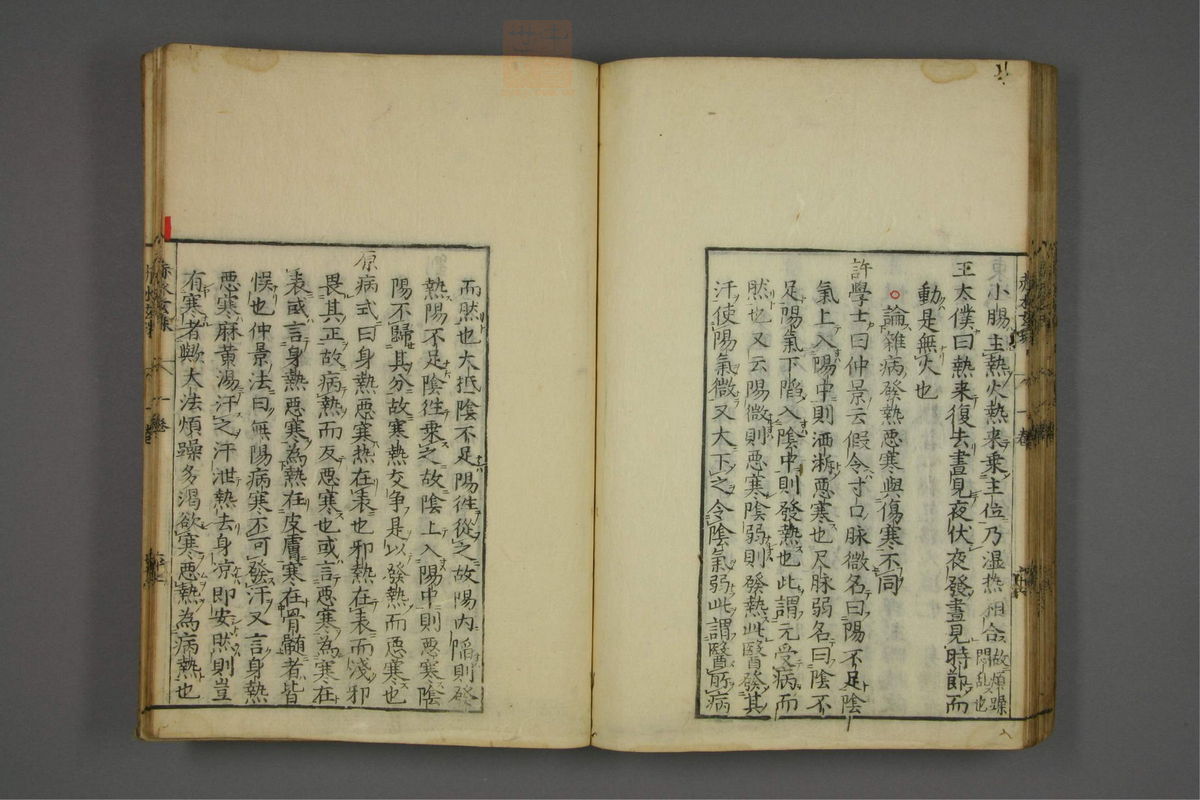 東小腸主熱火熱来乗主位乃湿热相合故煩躁悶乱也
王太僕曰熱来復去晝見夜伏夜發晝見時節而
動是無火也
論雜病發熱悪寒與傷寒不同
許學士曰仲景云假令寸口脉微名曰陽不足陰
氣上入陽中則洒淅悪寒也尺脉弱名曰陰不
足陽氣下陷入陰中則發熱也此謂元受病而
然也又云陽微則悪寒陰弱則發熱此醫發其
汗使陽氣微又大下之令陰氣弱此謂醫所病
而然也大抵陰不足陽徃從之故陽内陷則發
熱陽不足陰徃乗之故陰上入陽中則悪寒陰
陽不歸其分故寒熱交争是以發熱而悪寒也
原病式曰身熱悪寒热在表也邪熱在表而淺邪
畏其正故病熱而反悪寒也或言悪寒為寒在
表或言身熱悪寒為熱在皮膚寒在骨髄者皆
悞也仲景法曰無陽病寒不可發汗又言身熱
悪寒麻黄湯汗之汗泄熱去身凉即安然則豈
有寒者歟大法煩躁多渇欲寒悪熱為病熱也